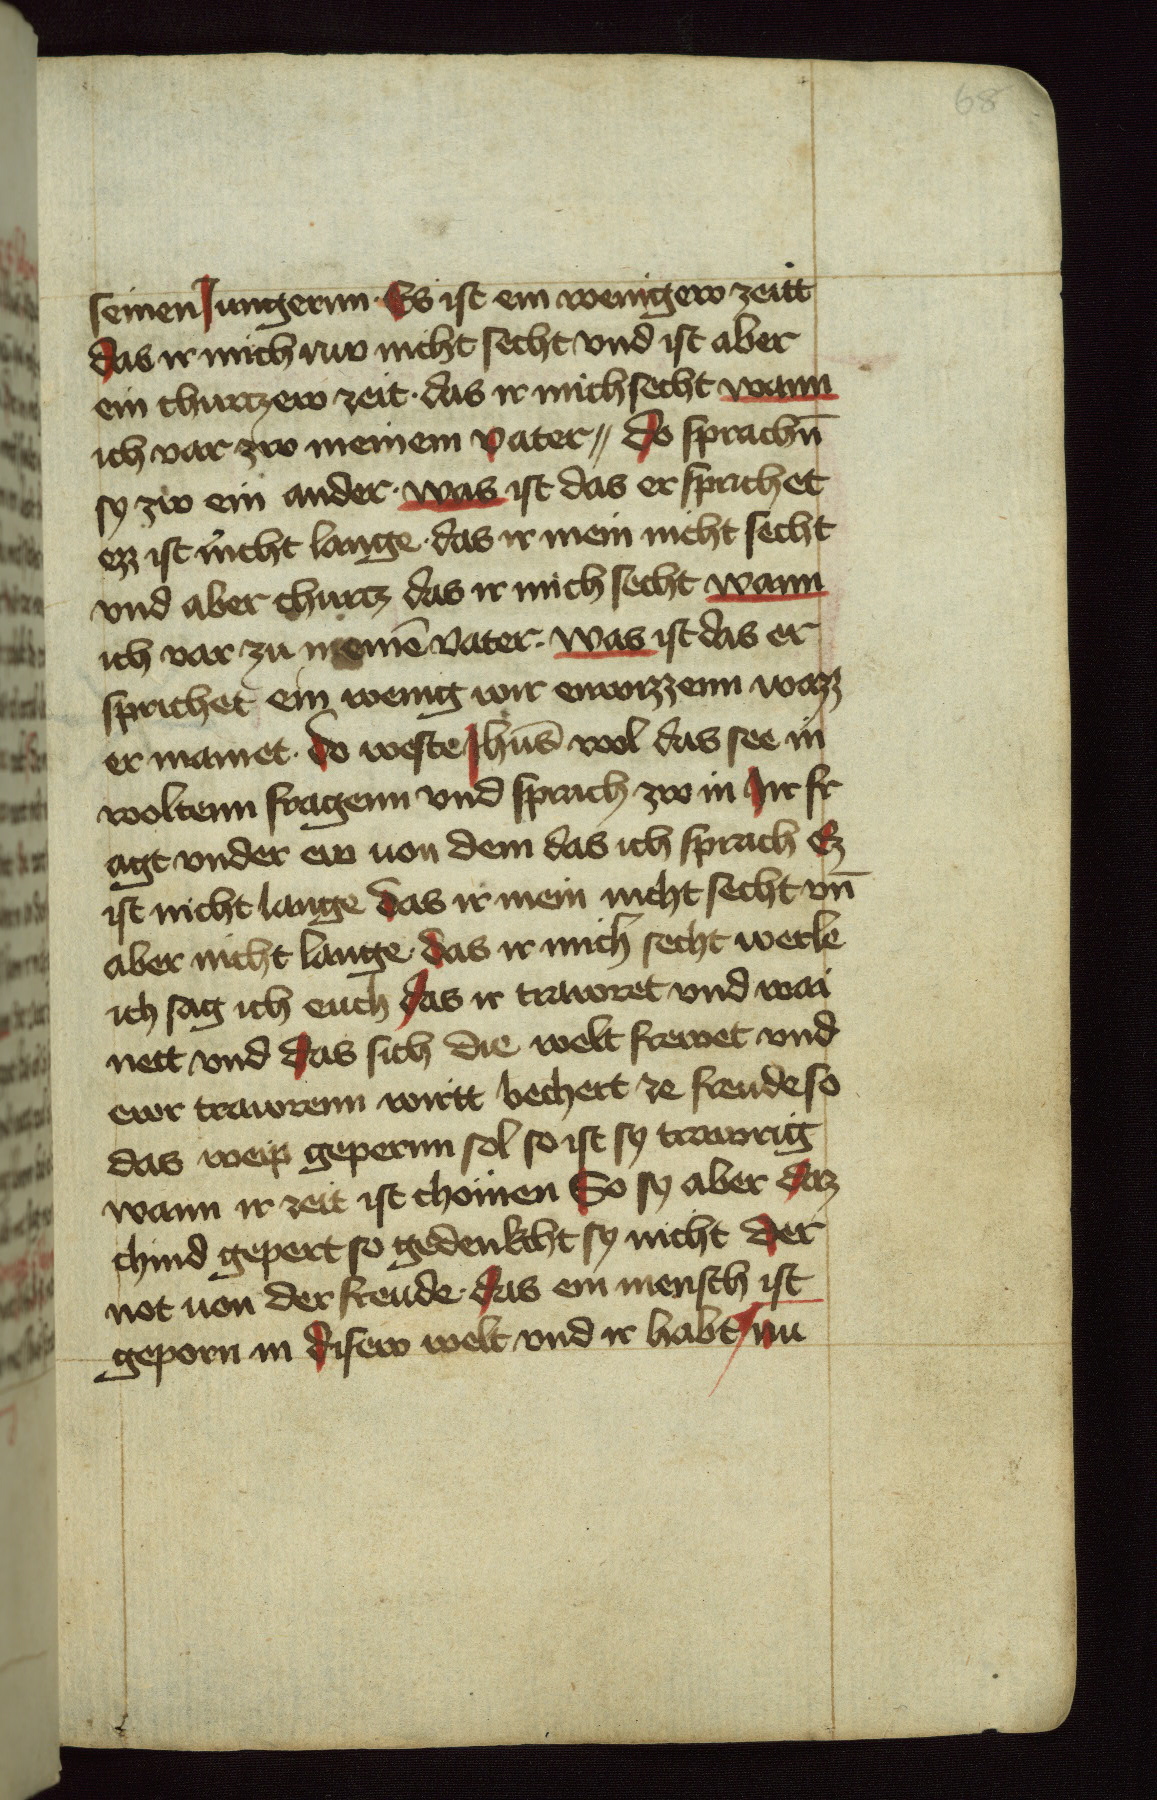 68
seinen Jungernn · Es ist ein wenigew zeitt
das ir mich nw nicht secht vnd ist aber
ein churtzew zeit · das ir mich secht wann
ich var zw meinem vater // do sprachn̄
sy zw ein ander · was ist das er sprichet
ezz ist nicht lange · das ir mein nicht secht
vnd aber churtz das ir mich secht wann
ich var zu meinē vater · was ist das er
sprichet ein wenig wir enwizzenn wazz
er mainet · do weste Jhūs wol das see in
woltenn fragenn vnd sprach zw in Ir fr
agt vnder ew uon dem das ich sprach Ez
ist nicht lange das ir mein nicht secht vn̄
aber nicht lange · das ir mich secht werle
ich sag ich euch das ir trawret vnd wai
nett vnd das sich die welt frewet vnd
ewr trawrenn wirtt bechert ze freude so
das weip gepernn sol so ist sy trawrig
wann ir zeit ist chomen So sy aber daz
chind gepert so gedenkcht sy nicht der
not uon der freude · das ein mensch ist
geporn in disew welt vnd ir habt / nu